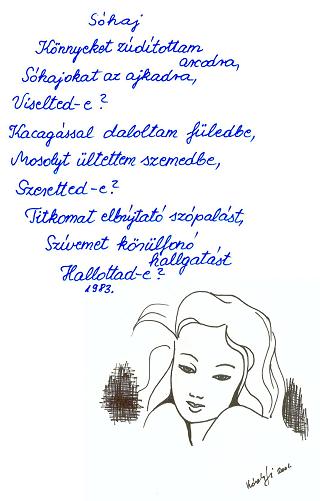 Sóhaj
Könnyeket zúdítottam
arcodra,
Sóhajokat az ajkadra,
Viselted-e?
Kacagással daloltam füledbe,
Mosolyt ültettem szemedbe,
Szeretted-e?
Titkomat elbújtató szópalást,
Szívemet körülfonó
hallgatást
Hallottad-e?
1983.